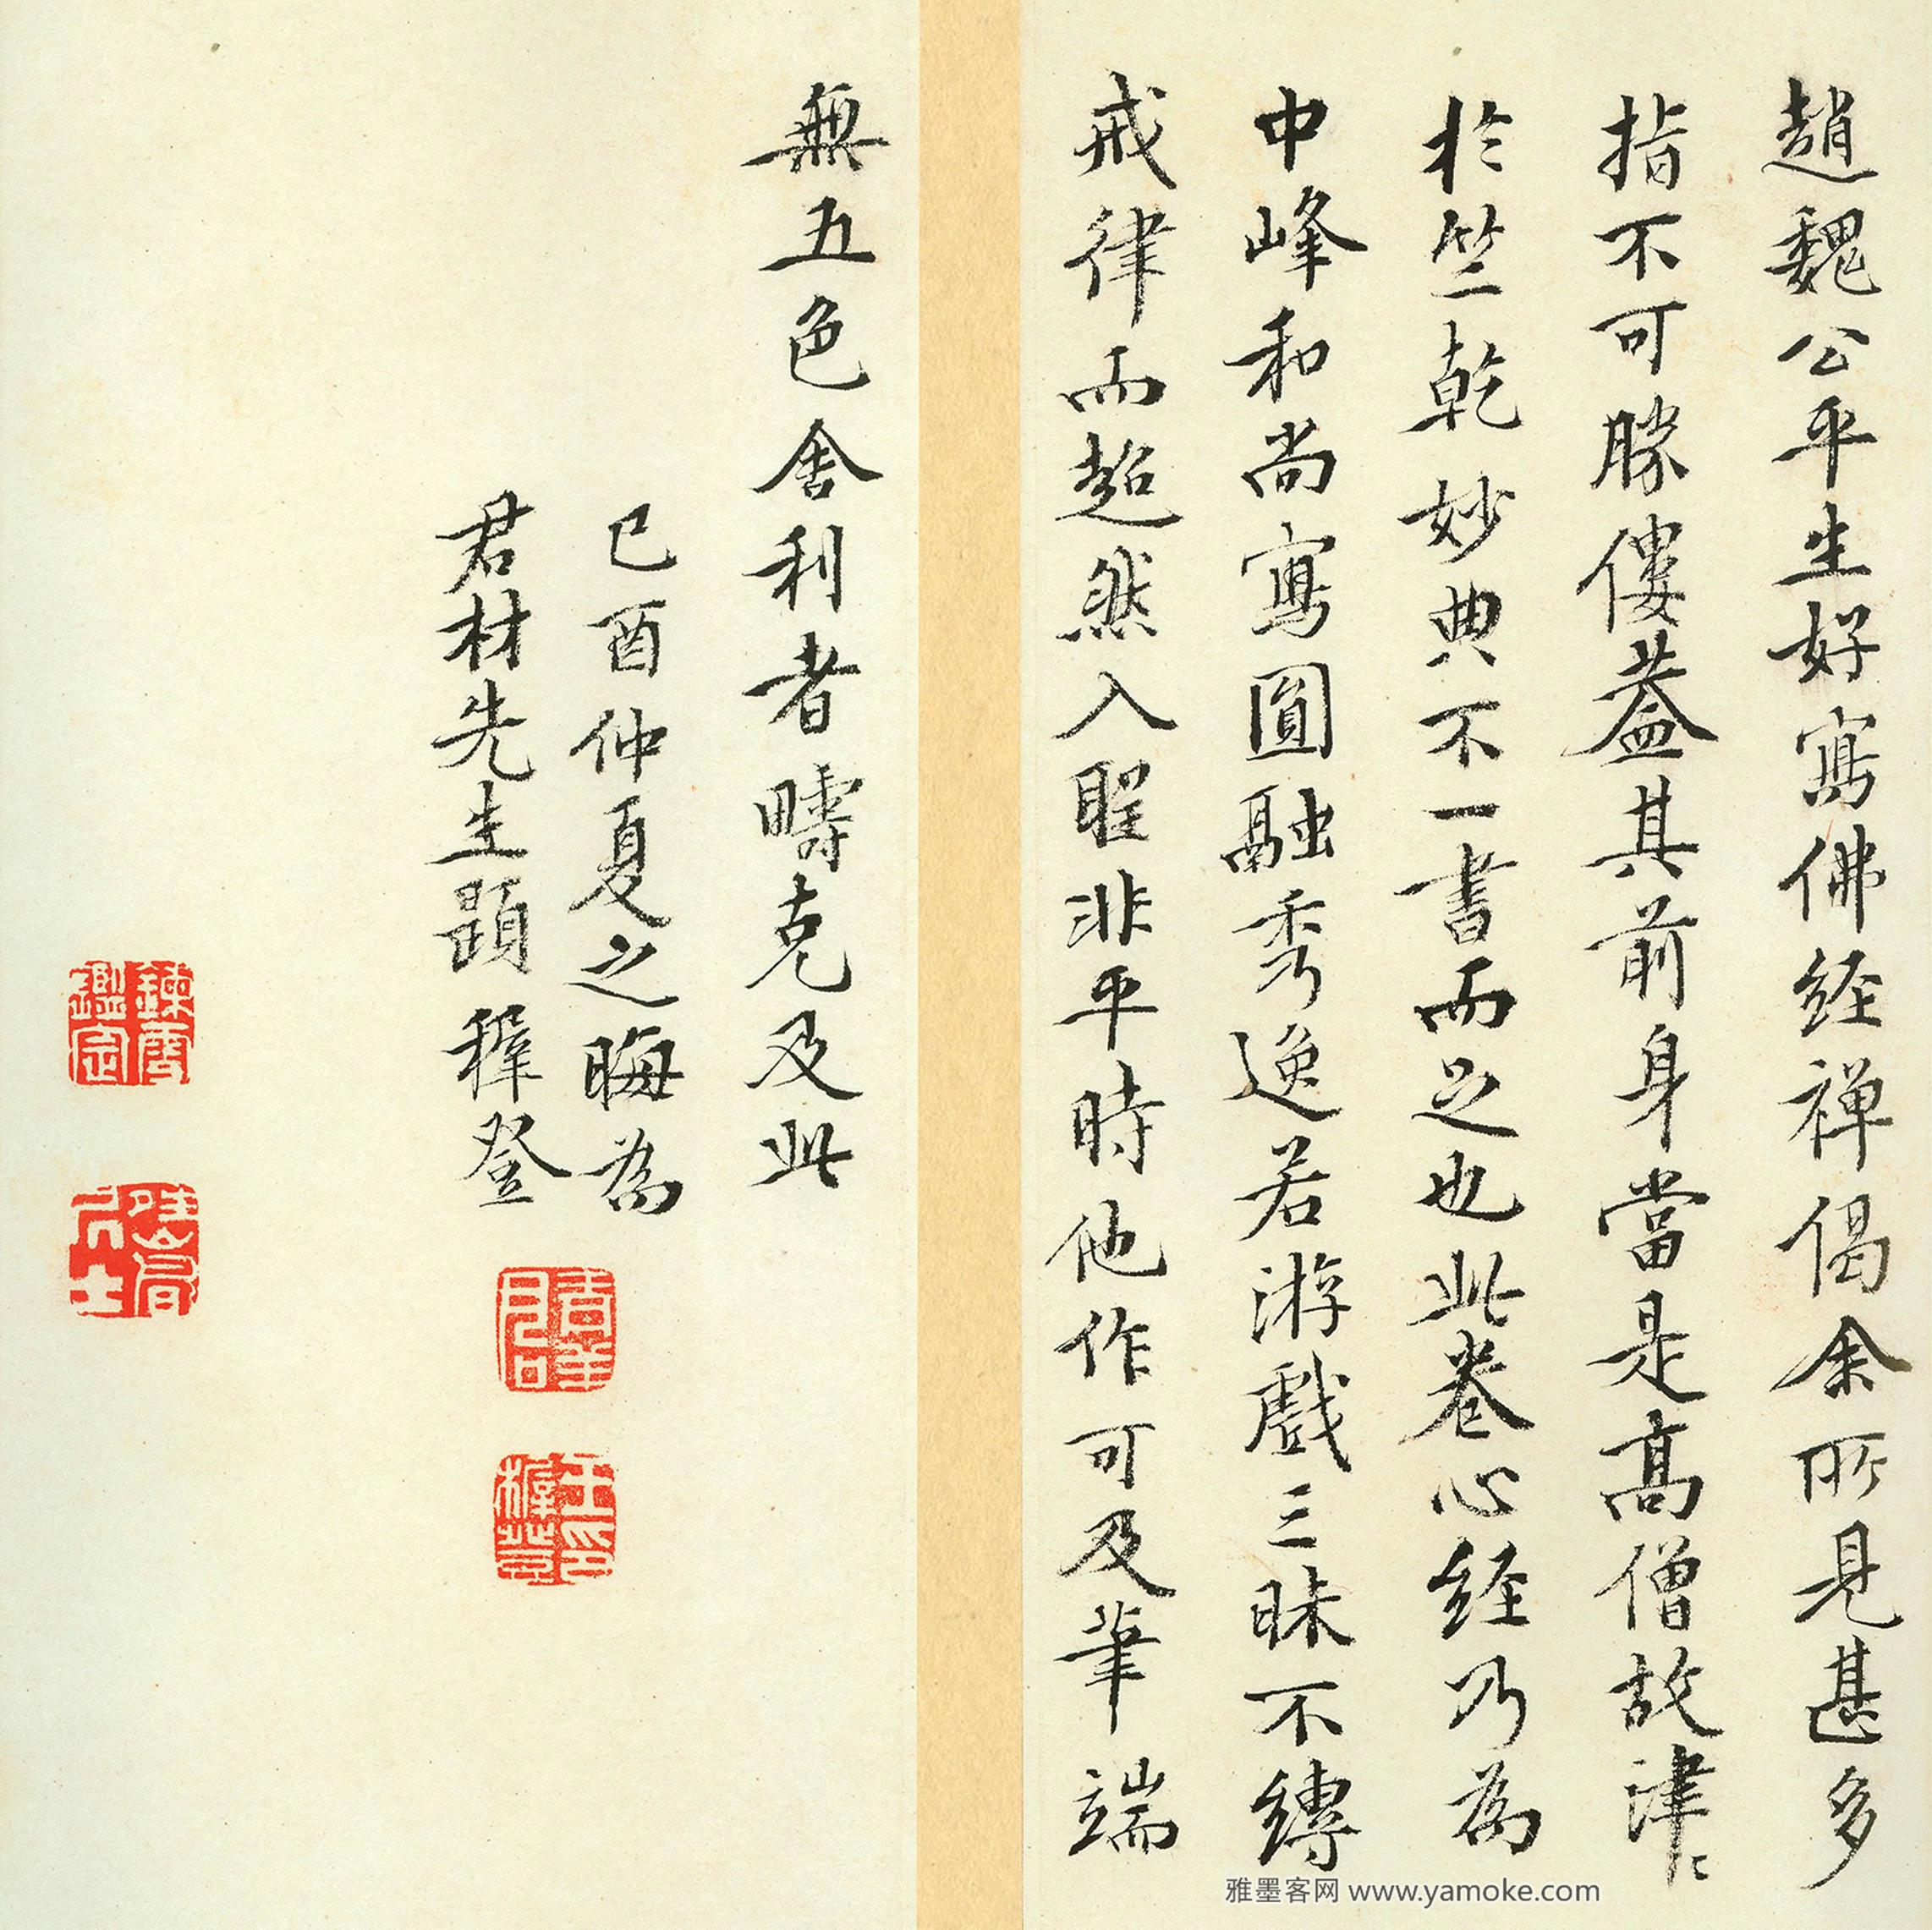 趙魏公平生好寫佛经禅偈余所見甚多
指不可勝僂蓋其前身當是高僧故津〻
於竺乾妙典不一書而足也此卷心经乃為
中峰和尚寫圓融秀逸若游戲三昧不縛
戒律而超然入聖非平時他作可及筆端
無五色舍利者疇克及此
己酉仲夏之晦為
君材先生題 穉登
青羊君
王穉登印
鍊雪鑑定
雅墨客网 www.yamoke.com